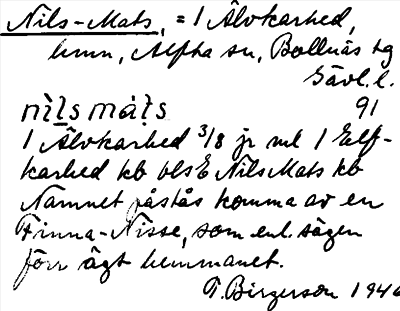 Nils-Mats, = 1 Älvkarhed,
hmn, Alfta sn, Bollnäs tg
Gävl. l.
nìl̥s màt̥s 91
1 Älvkarhed 3/8 jr ml 1 Elf-
karhed kb vls E Nils Mats kb
Namnet påstås komma av en
Finna-Nisse, som enl. sägen
förr ägt hemmanet.
T. Birgerson 1946